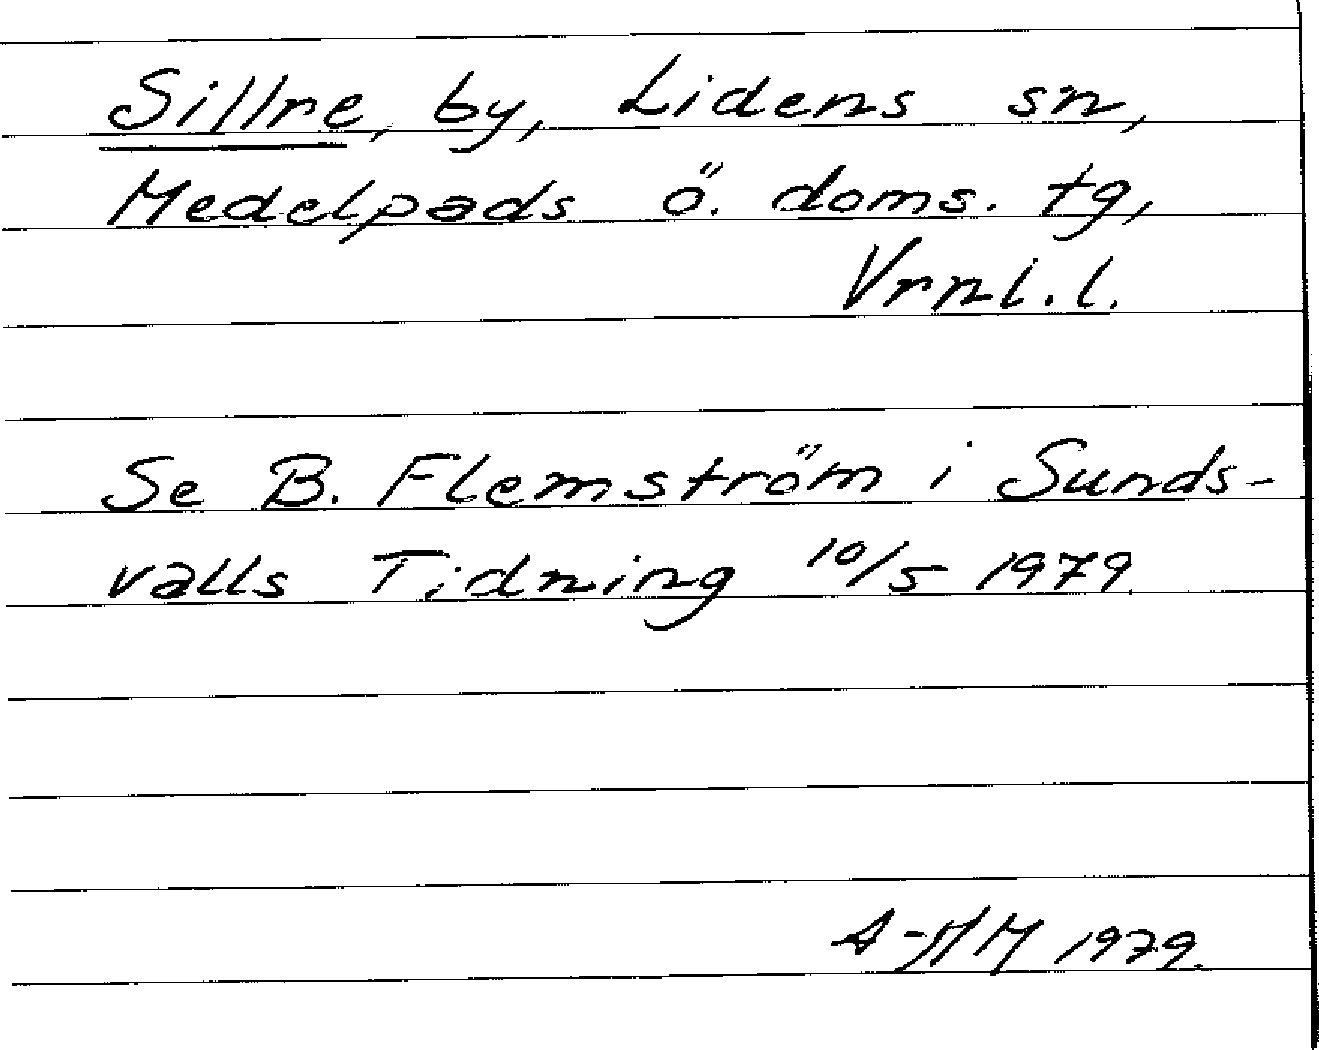 Sillre, by, Lidens sn,
Medelpads ö. doms. tg,
Vrnl. l.
Se B. Flemström i Sunds-
valls Tidning 10/5 1979.
1979.